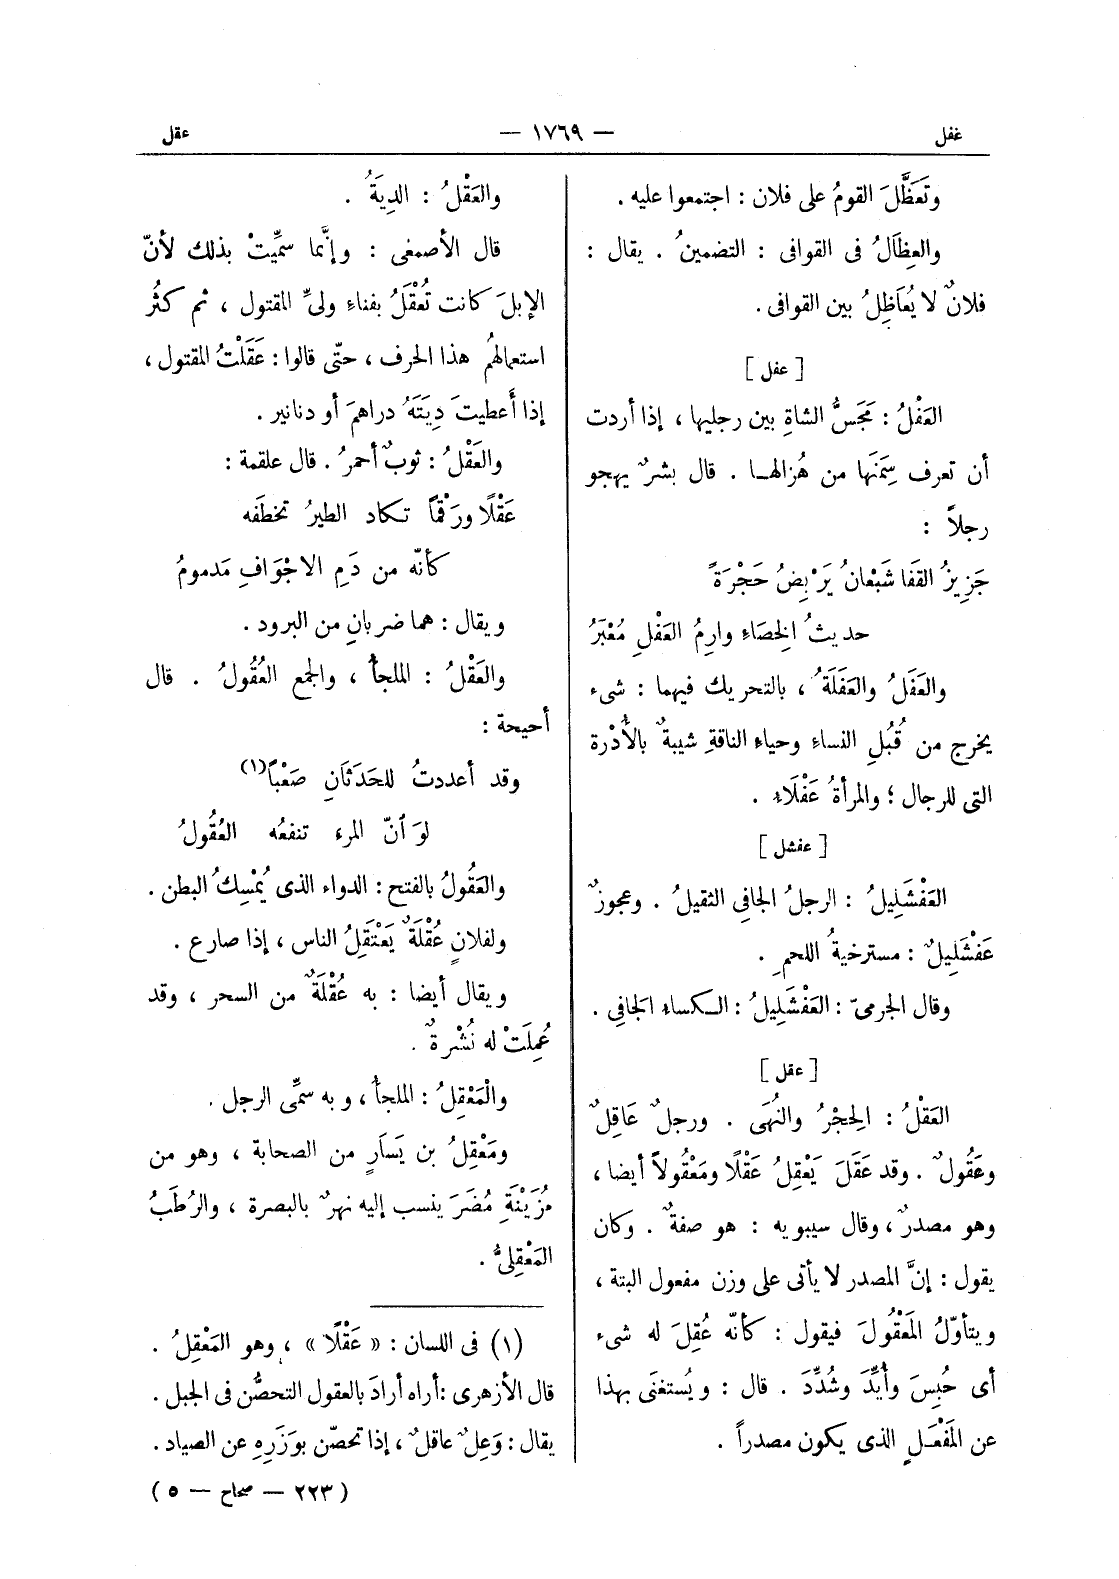 غفل — ١٧٦٩ — عقل
وتَعَظَّلَ القومُ على فلان : اجتمعوا عليه .
والعِظَالُ فى القوافى : التضمينُ . يقال :
فلانٌ لا يُعَاظِلُ بين القوافى .
[ عفل ]
العَفْلُ : مَجَسُّ الشاةِ بين رجليها ، إذا أردت
أن تعرف سِمَنَها من هُزالها . قال بشرٌ يهجو
رجلاً :
جَزِيزُ القَفَا شَبْعانُ يَرْبِضُ حَجْرَةً
حديثُ الخِصَاءِ وارِمُ العَفْلِ مُعْبَرُ
والعَفَلُ والعَفَلَةُ ، بالتحريك فيهما : شىء
يخرج من قُبُلِ النساءِ وحياءِ الناقةِ شبيهٌ بالأُدْرة
التى للرجال ؛ والمرأةُ عَفْلَاء .
[ عفشل ]
العَفْشَلِيلُ : الرجلُ الجافِى الثقيلُ . وعجوزٌ
عَفْشَلِيلٌ : مسترخيةُ اللحمِ .
وقال الجرمىّ : العَفْشَلِيلُ : الكساء الجافِى .
[ عقل ]
العَقْلُ : الحِجْرُ والنُهَى . ورجلٌ عَاقِلٌ
وعَقُولٌ . وقد عَقَلَ يَعْقِلُ عَقْلًا ومَعْقُولاً أيضا ،
وهو مصدرٌ ، وقال سيبويه : هو صفةٌ . وكان
يقول : إنَّ المصدر لا يأتى على وزن مفعول البتة ،
ويتأوّلُ المَعْقُولَ فيقول : كأنّه عُقِلَ له شىء
أى حُبِسَ وأُيِّدَ وشُدِّدَ . قال : ويُستغنَى بهذا
عن المَفْعَلِ الذى يكون مصدراً .
والعَقْلُ : الدِيَةُ .
قال الأصمعى : وإنَّما سمِّيتْ بذلك لأنّ
الإبلَ كانت تُعْقَلُ بفناءِ ولىِّ المقتول ، ثم كثُر
استعمالهُم هذا الحرف ، حتّى قالوا : عَقَلْتُ المقتول ،
إذا أعطيتَ دِيَتَهُ دراهمَ أو دنانير .
والعَقْلُ : ثوبٌ أحمرُ . قال علقمة :
عَقْلًا ورَقْمًا تكاد الطيرُ تخطَفه
كأنّه من دَمِ الاجْوَافِ مَدمومُ
ويقال : هما ضربانِ من البرود .
والعَقْلُ : الملجأُ ، والجمع العُقُولُ . قال
أحيحة :
وقد أعددتُ للحَدَثَانِ صَعْباً(١)
لوَ أنّ المرء تنفعُه العُقُولُ
والعَقُولُ بالفتح : الدواء الذى يُمْسِكُ البطن .
ولفلانٍ عُقْلَةٌ يَعْتَقِلُ الناس ، إذا صارع .
ويقال أيضا : به عُقْلَةٌ من السحر ، وقد
عُمِلَتْ له نُشْرةٌ .
والْمَعْقِلُ : الملجأُ ، وبه سمِّى الرجل .
ومَعْقِلُ بن يَسَارٍ من الصحابة ، وهو من
مُزَيْنَةِ مُضَرَ ينسب إليه نهرٌ بالبصرة ، والرُطَبُ
المَعْقِلىُّ .
(١) فى اللسان : « عَقْلًا » ، وهو المَعْقِلُ .
قال الأزهرى : أراه أرادَ بالعقول التحصُّن فى الجبل .
يقال : وَعِلٌ عاقلٌ ، إذا تحصّن بوَزَرِهِ عن الصياد .
( ٢٢٣ — صحاح — ٥ )